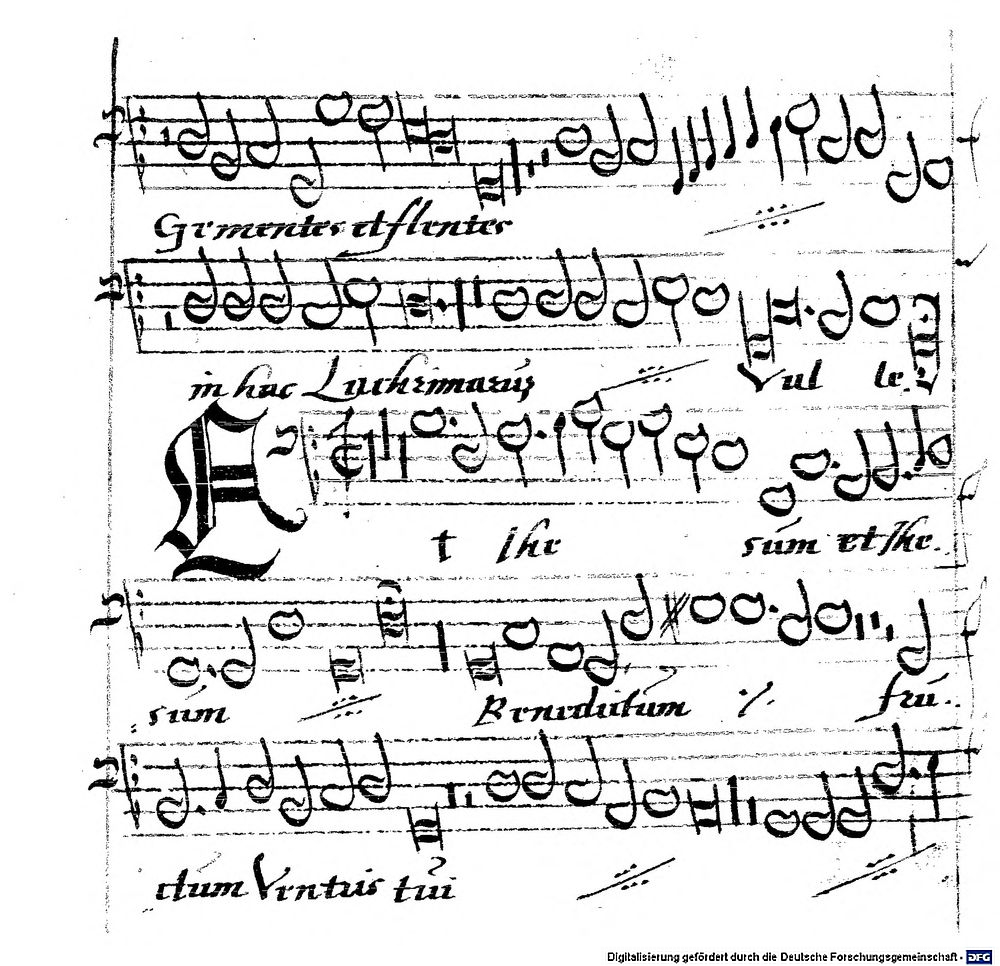 Gementes et flentes
in hac Lachrimarum Val le.
Et Ihe sum et Ihe.
sum Benedictum ·/. fru..
ctum Ventris tui
Digitalisierung gefördert durch die Deutsche Forschungsgemeinschaft - DFG